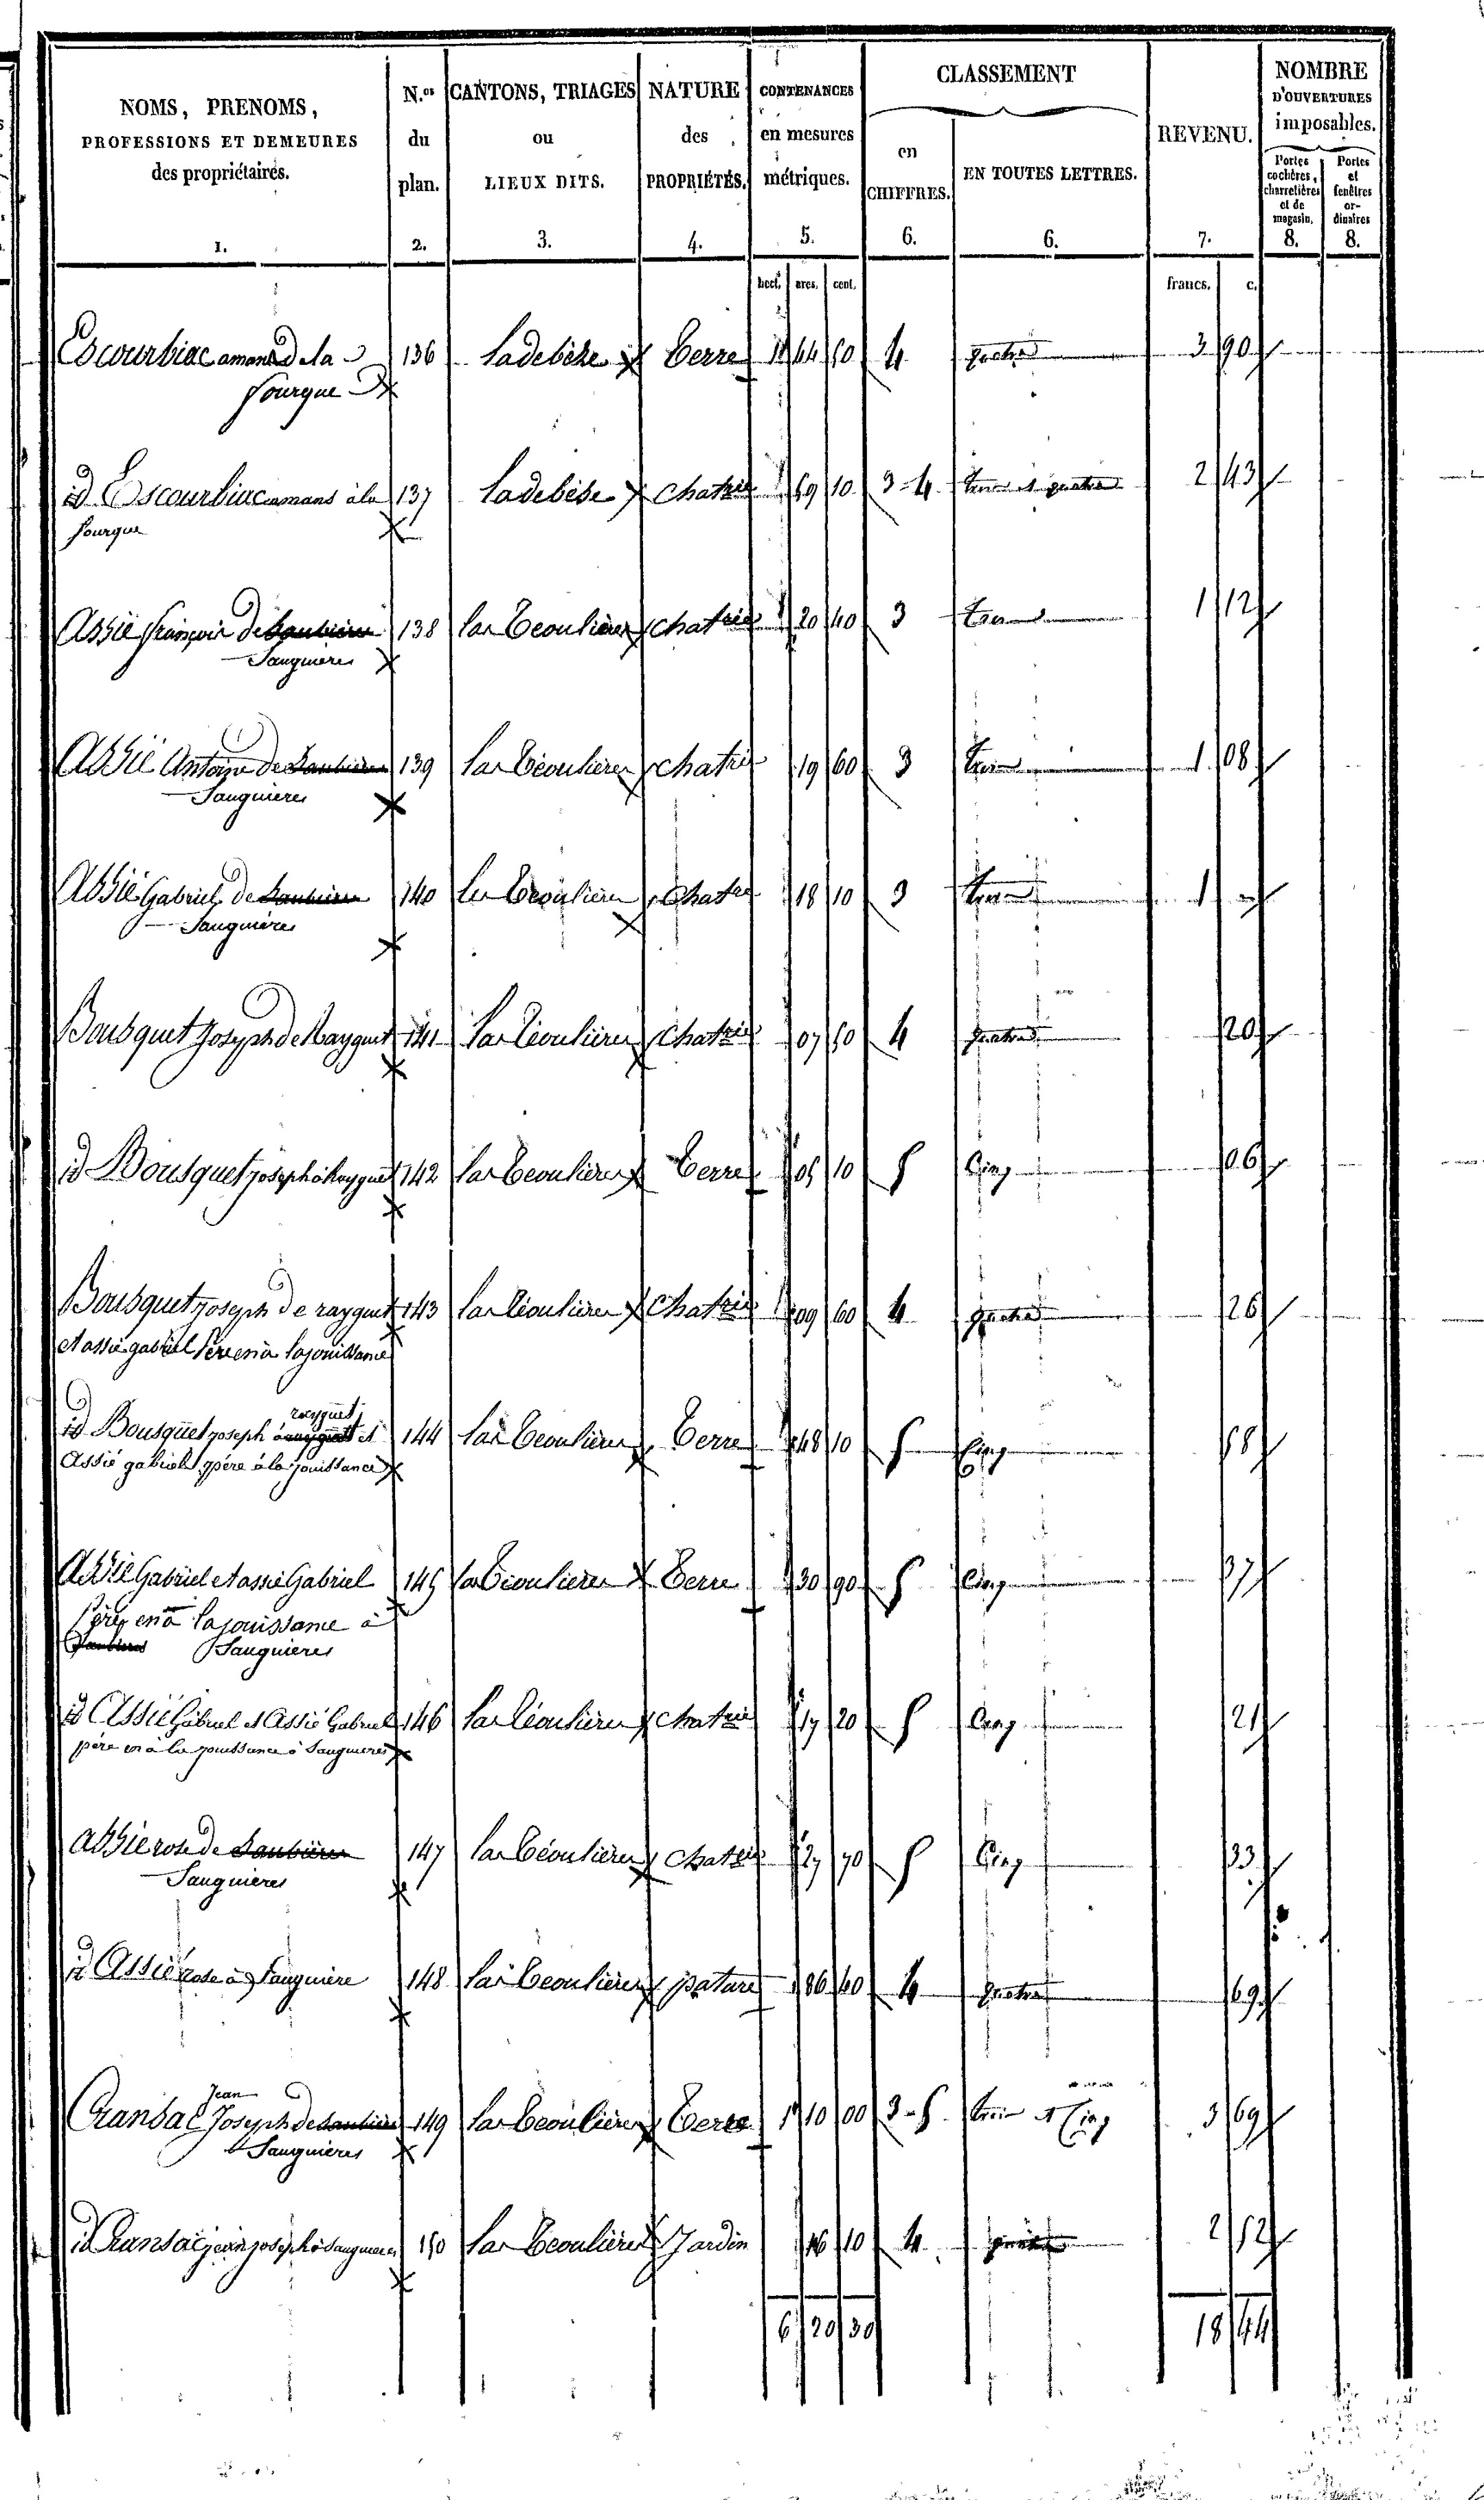 NOMS, PRENOMS,
PROFESSIONS ET DEMEURES
des propriétaires.
1.
N.os
du
plan.
2.
CANTONS, TRIAGES
ou
LIEUX DITS.
3.
NATURE
des
PROPRIÉTÉS.
4.
CONTENANCES
en mesures
métriques.
5.
CLASSEMENT
en
CHIFFRES.
6.
EN TOUTES LETTRES.
6.
REVENU.
7.
NOMBRE
D'OUVERTURES
imposables.
Portes
cochères,
charretières
et de
magasin.
8.
Portes
et
fenêtres
or-
dinaires
8.
hect. ares. cent. francs. c.
Escourbiac amans de la 136 Ladebèze Terre 44 4 quatre 3 90
fourque
id Escourbiac amans à la 137 Ladebèse chat 69 10 3-4 trois et quatre 2 43
fourque
Assié françois de 138 las Teoulières chat 20 40 3 trois 1 12
Sauguieres
Assié Antoine de 139 las Teoulieres chat 19 60 3 trois 1 08
Sauguieres
Assié Gabriel de 140 Teoulieres chat 18 10 3 trois 1
Sauguières
Bousquet Joseph de Rayguet 141 las Teoulieres chat 07 4 quatre 20
id Bousquet joseph à Rayguet 142 las Teoulieres Terre 05 10 5 Cinq 06
Bousquet joseph de rayguet 143 las Teoulieres chat 09 60 4 quatre 26
et assié gabriel Père en a la jouissance
rayguet
id Bousquet joseph à et 144 las Teoulieres Terre 48 10 5 Cinq 58
Assié gabriel père à la jouissance
Assié Gabriel et assié Gabriel 145 las Teoulieres Terre 30 90 5 Cinq 37
Père en a la jouissance à
Sauguieres
id Assié Gabriel et Assié Gabriel 146 las Teoulieres chat 17 20 5 Cinq 21
père en à la jouissance à Sauguieres
assié rose de 147 las Teoulieres chat 27 70 5 Cinq 33
Sauguieres
id Assié rose à Sauguière 148 las Teoulieres pature 86 40 4 quatre 69
Jean
Cransac Joseph de 149 las Teoulieres Terre 1 10 00 3-5 trois et Cinq 3 69
Sauguieres
id Cransac jean joseph à Sauguieres 150 las Teoulieres Jardin 10 4 2 52
6 20 30 18 44